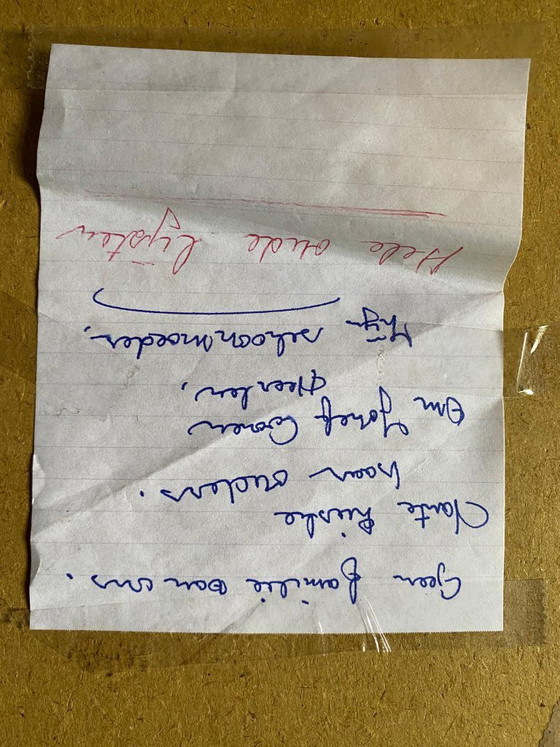 Geen familie van ons.
Tante Lieske
haar ouders.
Om Jozef Coenen
Heerlen.
Mijn schoonmoeder.
Hele oude lijsten